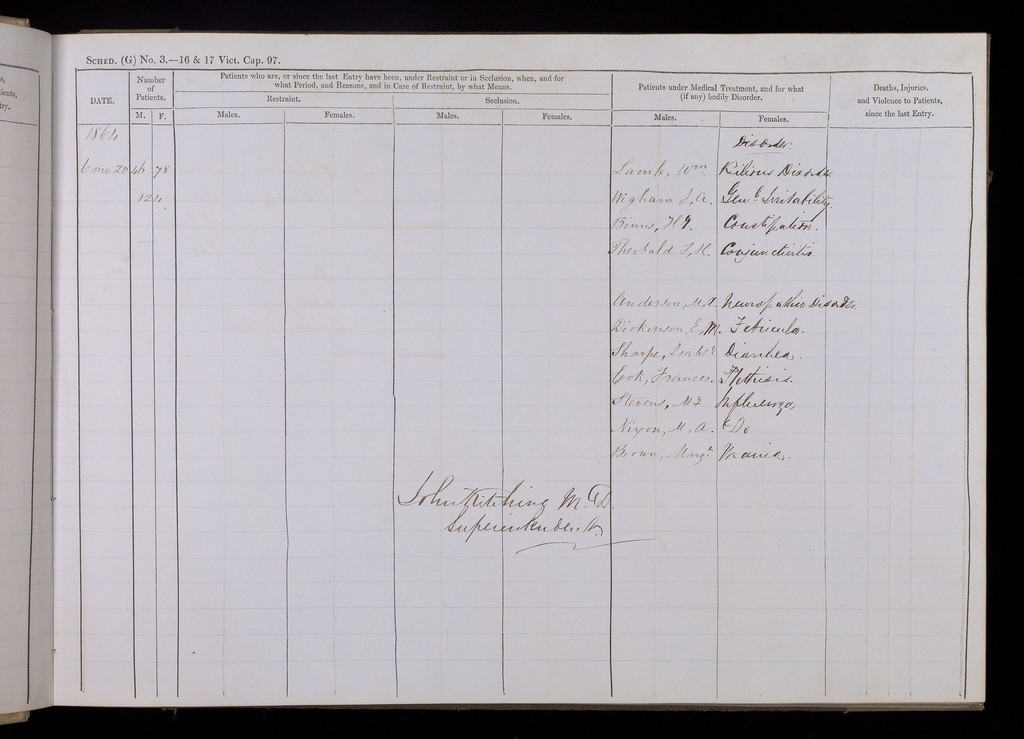 s,
ients,
try.
SCHED. (G) No. 3.—16 & 17 Vict. Cap. 97.
DATE.
Number of Patients.
M. F.
Patients who are, or since the last Entry have been, under Restraint or in Seclusion, when, and for
what Period, and Reasons, and in Case of Restraint, by what Means.
Restraint.
Seclusion.
Males. Females. Males. Females.
Patients under Medical Treatment, and for what
(if any) bodily Disorder.
Males. Females.
Deaths, Injuries,
and Violence to Patients,
since the last Entry.
1864
Disorder.
6 mo 20 46 78 Lamb, Wm Bilious Disorder
124 Wigham J, A. Genl Irritability
Binns, H Y. Constipation.
Theobald J, H. Conjunctivitis
Anderson, M. Neuropathic Disorder
Dickinson, E, M. Febricula.
Sharpe, Isabel Diarrhea.
Cook, Frances. Phthisis.
Stevens, My Influenza
Nixon, M, A. Do
Brown, Margt Mania.
John Kitching M.D.
Superintendent